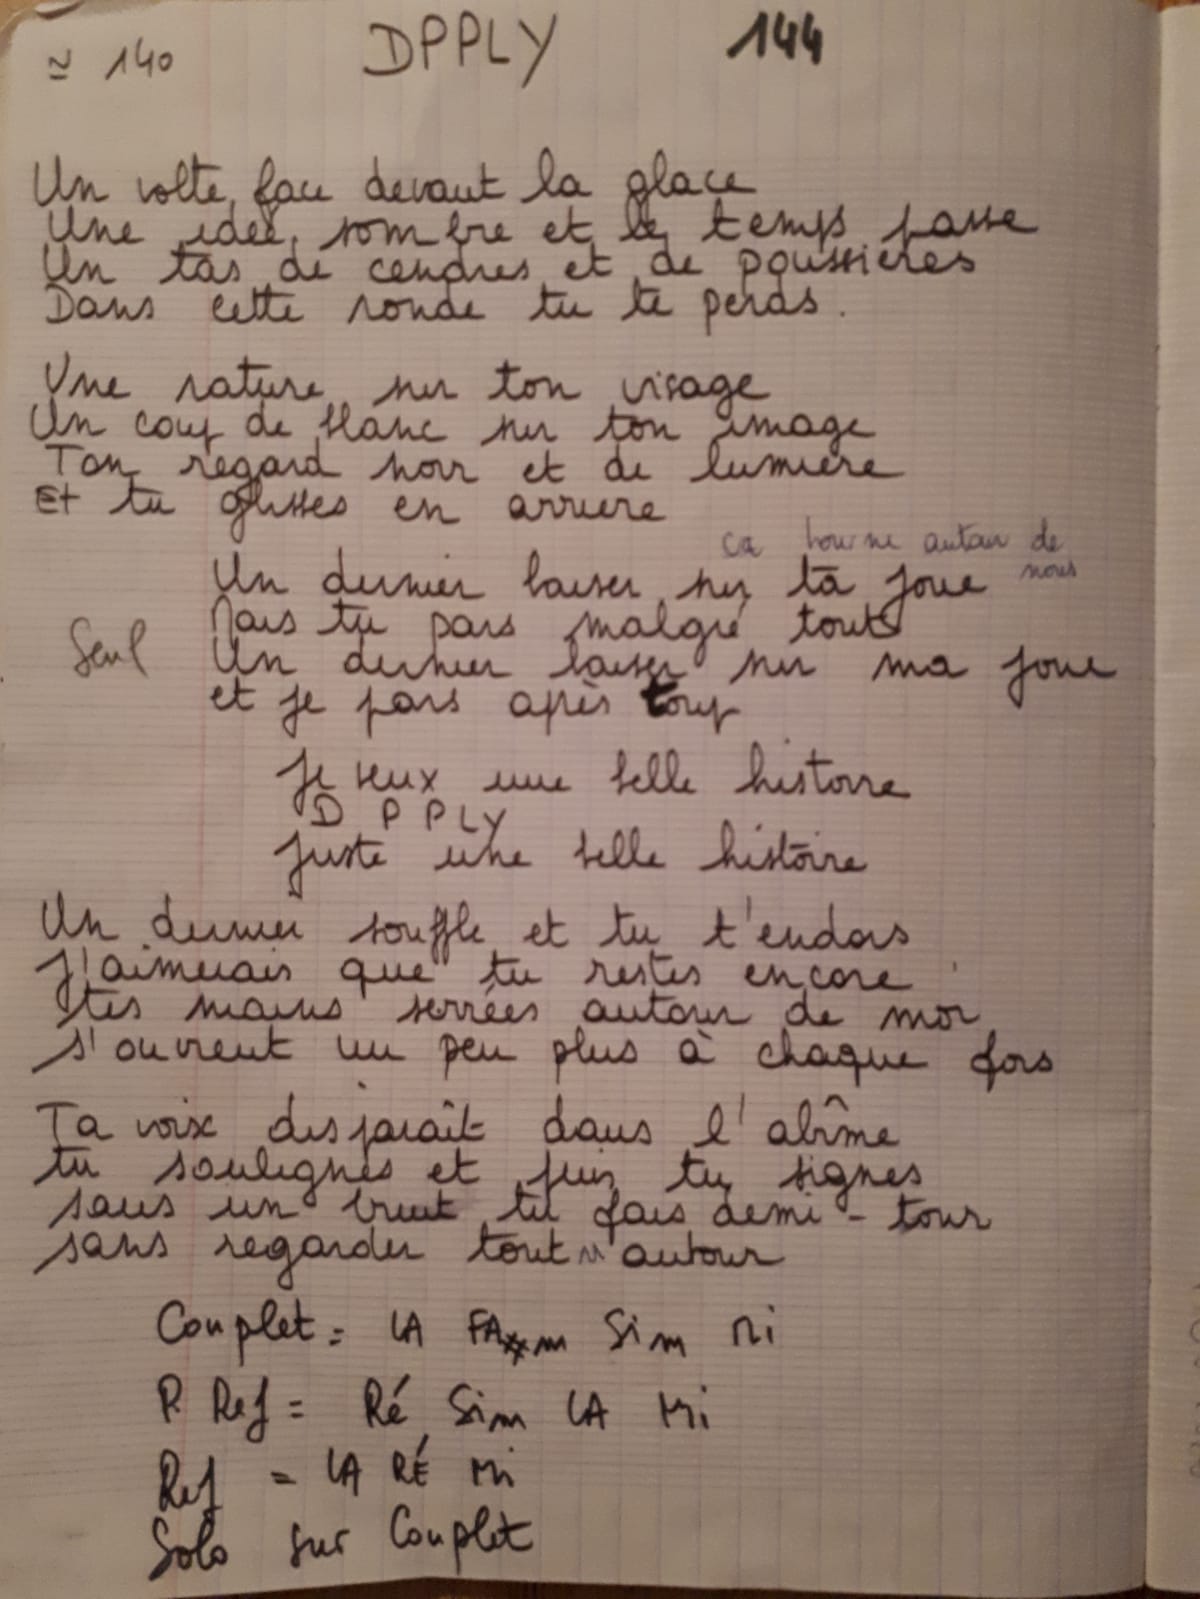 ≃ 140 DPPLY 144
Un volte face devant la glace
Une idée sombre et le temps passe
Un tas de cendres et de poussières
Dans cette ronde tu te perds.
Une rature sur ton visage
Un coup de blanc sur ton image
Ton regard noir et de lumière
Et tu glisses en arrière
ça tourne autour de
nous
Un dernier baiser sur ta joue
Mais tu pars malgré tout
Seul Un dernier baiser sur ma joue
et je pars après tout
Je veux une belle histoire
D P P L Y
Juste une belle histoire
Un dernier souffle et tu t'endors
J'aimerais que tu restes encore
tes mains serrées autour de moi
s'ouvrent un peu plus à chaque fois
Ta voix disparaît dans l'abîme
tu soulignes et puis tu signes
sans un bruit tu fais demi-tour
sans regarder tout autour
Couplet = LA FA#m Sim Mi
P. Ref = Ré Sim LA Mi
Ref = LA RÉ Mi
Solo sur Couplet